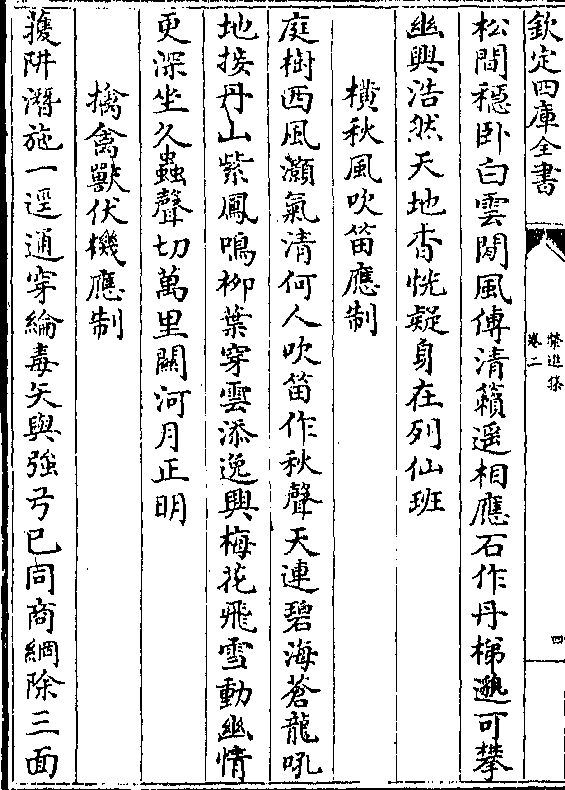 欽定四庫全書
禁進集
卷二
四
松間穩卧白雲閒風傳清籟遥相應石作丹梯邈可攀
幽興浩然天地杳恍疑身在列仙班
橫秋風吹笛應制
庭樹西風灝氣清何人吹笛作秋聲天連碧海蒼龍吼
地接丹山紫鳳鳴柳葉穿雲添逸興梅花飛雪動幽情
更深坐久蟲聲切萬里關河月正明
擒禽獸伏機應制
䕶阱潛施一逕通穿綸毒矢與強弓已同商網除三面